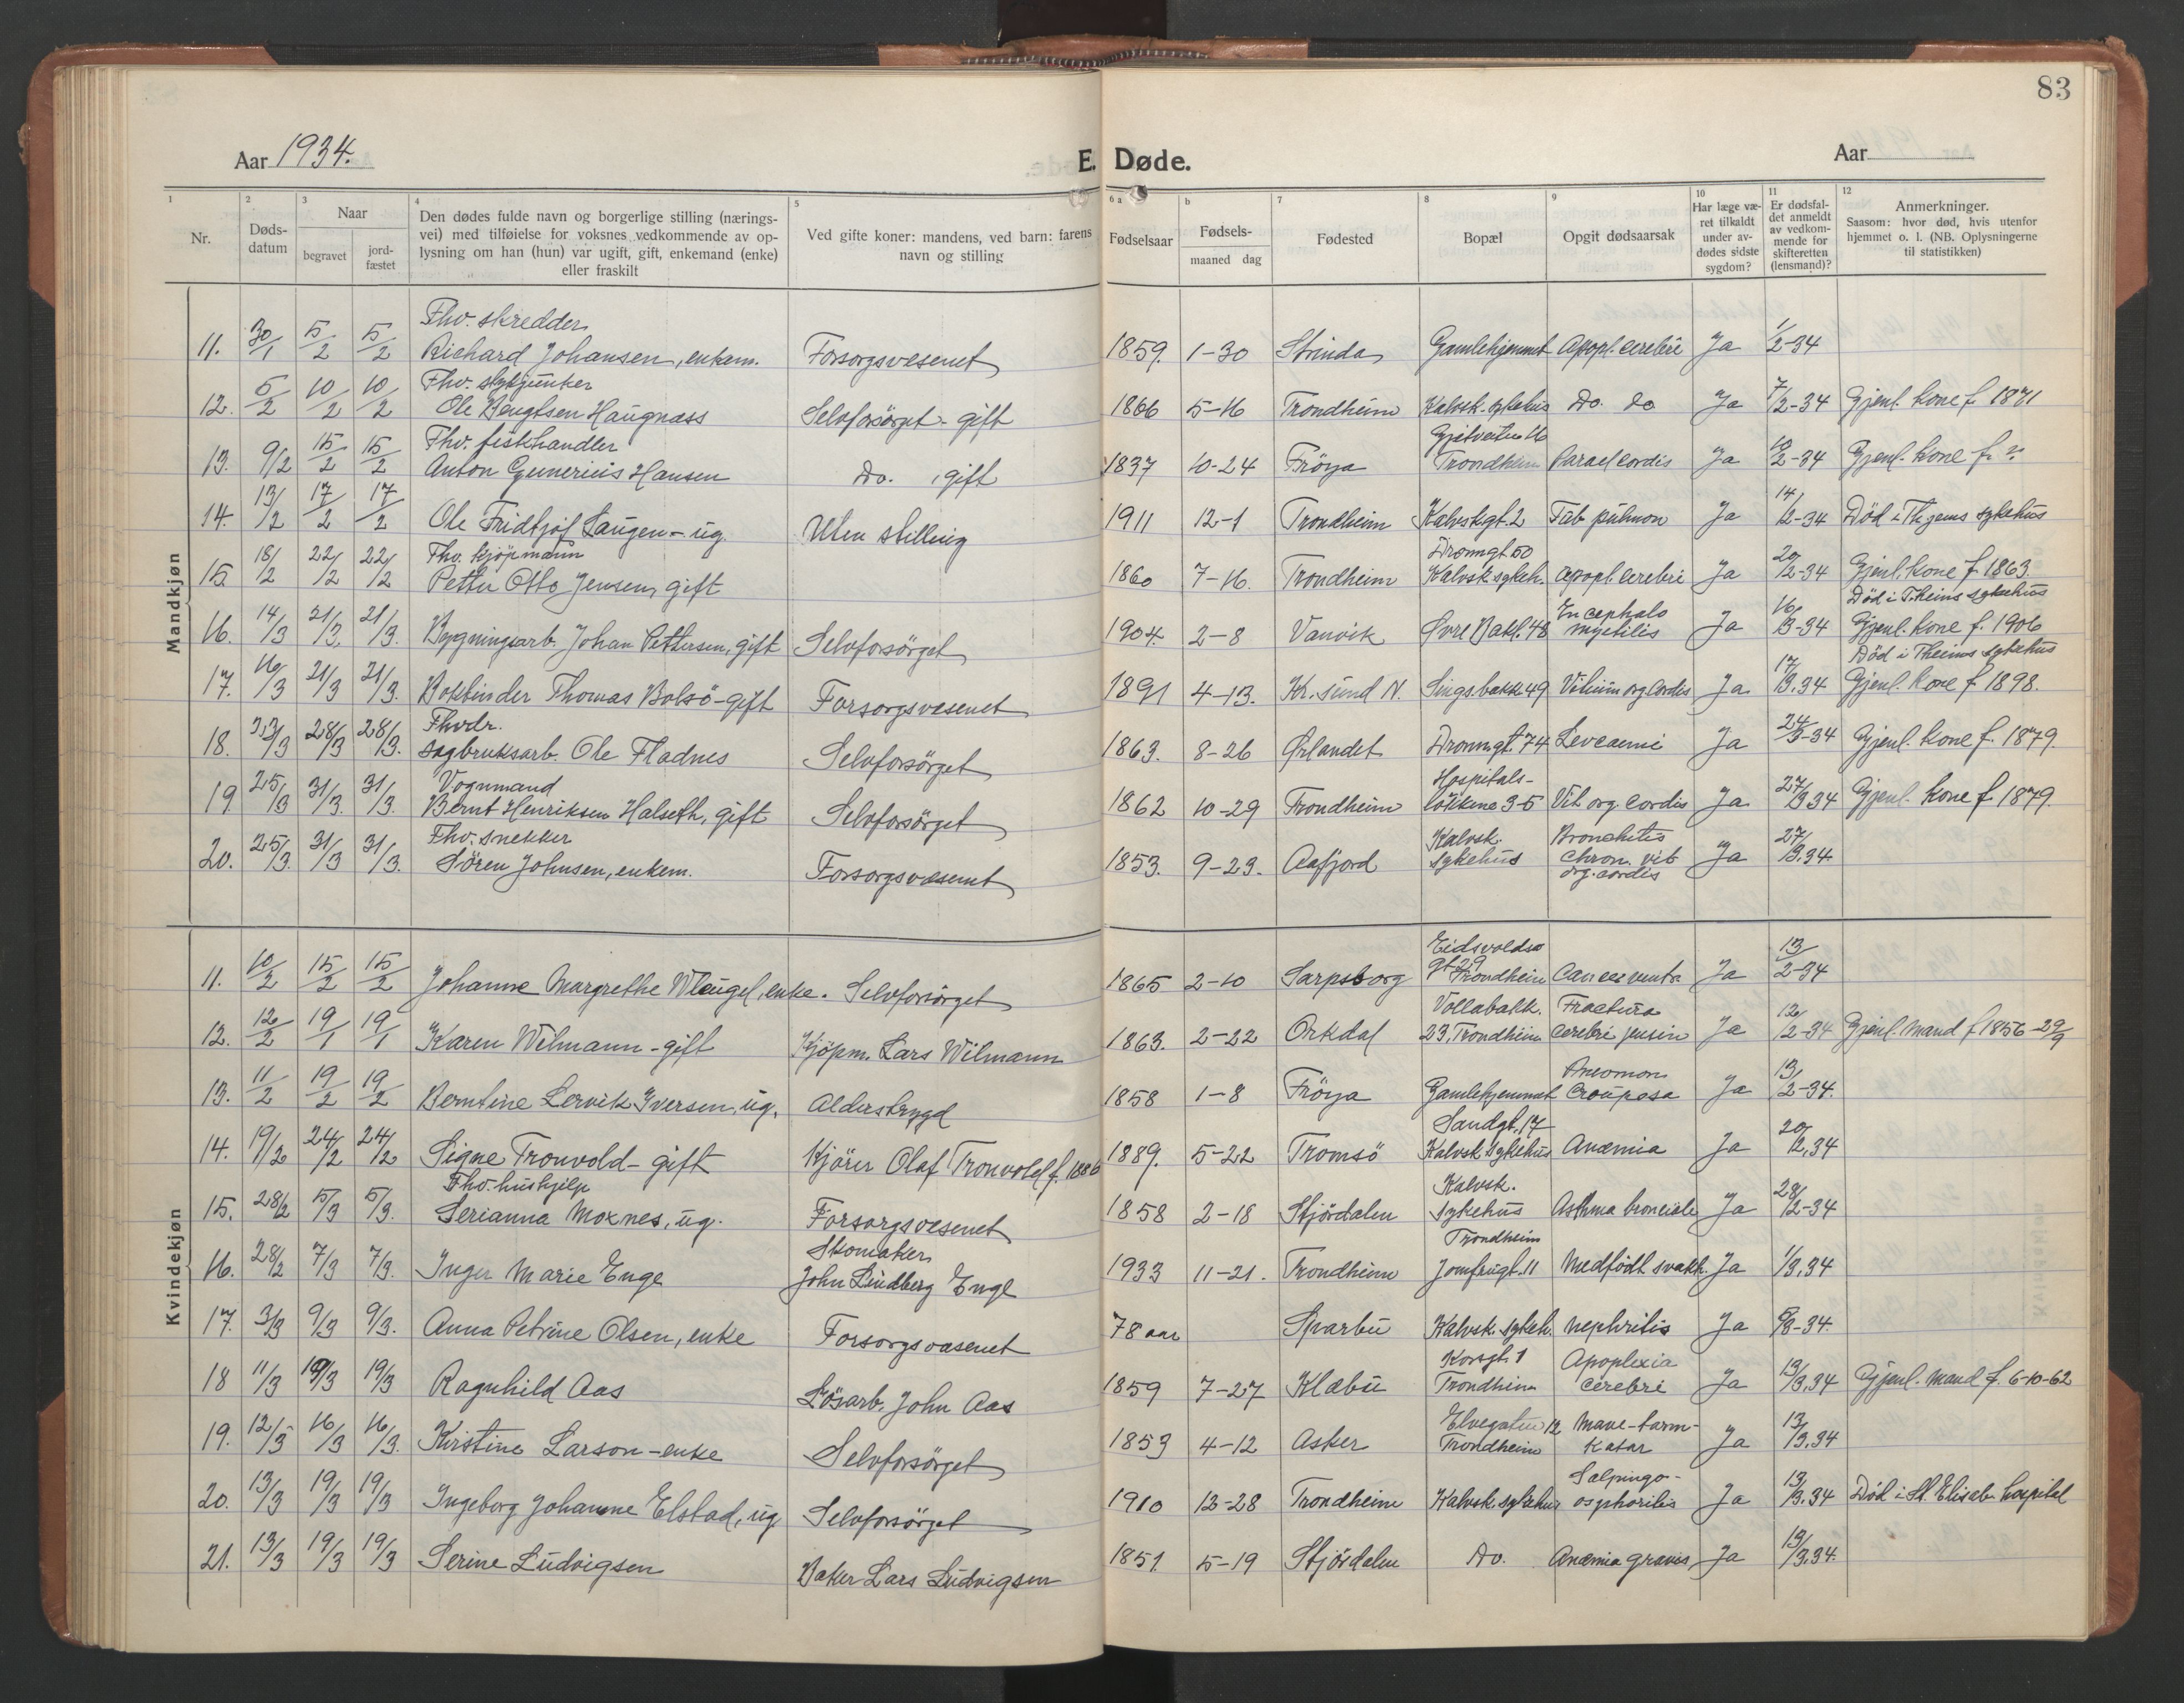 83
Aar 1934.
E. Døde.
Aar
1 2 3 4 5 6 a b 7 8 9 10 11 12
Nr.
Døds-
datum
Naar
begravet
jord-
fæstet
Den dødes fulde navn og borgerlige stilling (nærings-
vei) med tilføielse for voksnes vedkommende av op-
lysning om han (hun) var ugift, gift, enkemand (enke)
eller fraskilt
Ved gifte koner: mandens, ved barn: farens
navn og stilling
Fødselsaar
Fødsels-
maaned dag
Fødested
Bopæl
Opgit dødsaarsak
Har læge væ-
ret tilkaldt
under av-
dødes sidste
sygdom?
Er dødsfal-
det anmeldt
av vedkom-
mende for
skifteretten
(lensmand)?
Anmerkninger.
Saasom: hvor død, hvis utenfor
hjemmet o. l. (NB. Oplysningerne
til statistikken)
Mandkjøn
Fhv. skredder
11. 30/1 5/2 5/2 Richard Johansen, enkem. Forsorgsvesenet 1859. 1-30 Strinda Gamlehjemmet Apopl. cerebri Ja 1/2-34
Fhv.
12. 5/2 10/2 10/2 Ole Bengtsen Haugnass Selvforsörget - gift 1866 5-16 Trondheim Kalvsk. sykehus Do. do Ja 7/2-34 Gjenl. kone f. 1871
Fhv. fiskhandler
13. 9/2 15/2 15/2 Anton Gunerius Hansen Do. , gift 1837 10-24 Fröya Trondheim cordis Ja 10/2-34 Gjenl. kone f. ?
14. 13/2 17/2 17/2 Ole Fridtjof Laugen - ug. Uten stilling 1911 12-1 Trondheim Kalvskgt. 2 Tub pulmon Ja 14/2-34 Död i Thjems sykehus
Fhv. kjöpmann Dronngt 50
15. 18/2 22/2 22/2 Petter Otto Jensen, gift 1860 7-16. Trondheim Kalvsk sykeh. apopl. cerebri Ja 20/2-34 Gjenl. kone f. 1863.
Encephalo Död i T.heims sykehus
16. 14/3 21/3. 21/3. Bygningsarb. Johan Pettersen, gift Selvforsörget 1904. 2-8 Vanvik Øvre Bakl. 48 myelitis Ja 16/3-34 Gjenl. kone f. 1906
Död i Theims sykehus
17. 16/3 21/3 21/3. Bokbinder Thomas Bolsö - gift Forsorgsvesenet 1891 4-13. Kr. sund N. Singsbakk. 49 Vitium org Cordis Ja 17/3.34 Gjenl. kone f. 1898.
Fhvdr.
18. 23/3 28/3 28/3. Sagbruksarb. Ole Fladnes Selvforsörget 1863. 8-26 Ørlandet Dronngt. 74 Leucaemi Ja 24/3-34 Gjenl. kone f. 1879.
Vognmand Hospitals-
19 25/3 31/3. 31/3. Bernt Henriksen Halseth, gift Selvforsörget 1862 10-29 Trondheim lökkene 3-5 Vit. org. Cordis Ja 27/3 34 Gjenl. kone f. 1879.
Fhv. snekker Kalvsk. Bronchitis
20. 25/3. 31/3 31/3. Sören Johnsen, enkem. Forsorgsvesenet 1853. 9-23. Aafjord sykehus chron. vit Ja 27/3.34
org. cordis
Kvindekjøn
Eidsvolds
11. 10/2 15/2 15/2 Johanne Margrethe Wleugel, enke. Selvforsörget 1865 2-10 Sarpsborg gt 29 Trondheim Cancer ventr. Ja 13/2-34
Vollabakk. Fractura
12. 12/2 19/1 19/1 Karen Wilmann - gift Kjöpm. Lars Wilmann 1863. 2-22 Orkdal 23, Trondheim Ja 12/2-34 Gjenl. mand f 1856-29/9
Pneomon
13. 11/2 19/2 19/2 Berntine Lervik Iversen, ug. Alderstrygd 1858 1-8 Fröya Gamlehjemmet Croupøsa Ja 13/2-34.
Sandgt. 17
14. 19/2 24/2 24/2 Signe Tronvold - gift Kjörer Olaf Tronvold f. 1886 1889. 5-22 Tromsö Kalvsk sykehus Anæmia Ja 20/2.34
Fhv. hushjelp Kalvsk.
15. 28/2 5/3 5/3. Serianna Moxnes, ug. Forsorgsvesenet 1858 2-18 Stjördalen sykehus Asthma bronciale Ja 28/2-34
Skomaker Trondheim
16. 28/2 7/3 7/3. Inger Marie Enge John Lindberg Enge 1933 11-21. Trondheim Jomfrugt. 11 Medfödt svakh. Ja 1/3.34
17. 3/3 9/3 9/3. Anna Petrine Olsen, enke Forsorgsvesenet 78 aar Sparbu Kalvsk. sykeh. nephritis Ja 5/3-34.
Korsgt. 1 Apoplexia
18 11/3 19/3 19/3 Ragnhild Aas Lösarb. John Aas 1859 7-27 Klæbu Trondheim cerebri Ja 13/3.34 Gjenl. mand f. 6-10-62
Elvegaten 12 Mave-tarm-
19. 12/3 16/3 16/3. Kirstine Larson - enke Selvforsörget 1853 4-12 Asker Trondheim katar Ja 13/3.34
Salpingo-
20. 13/3 19/3 19/3 Ingeborg Johanne Elstad, ug. Selvforsörget 1910 12-28 Trondheim Kalvsk. sykehus oophoritis Ja 13/3.34 Död i St. Elisab. hospital
21. 13/3 19/3 19/3 Serine Ludvigsen Baker Lars Ludvigsen 1851 5-19 Stjördalen Do. Anæmia gravis Ja 13/3.34.